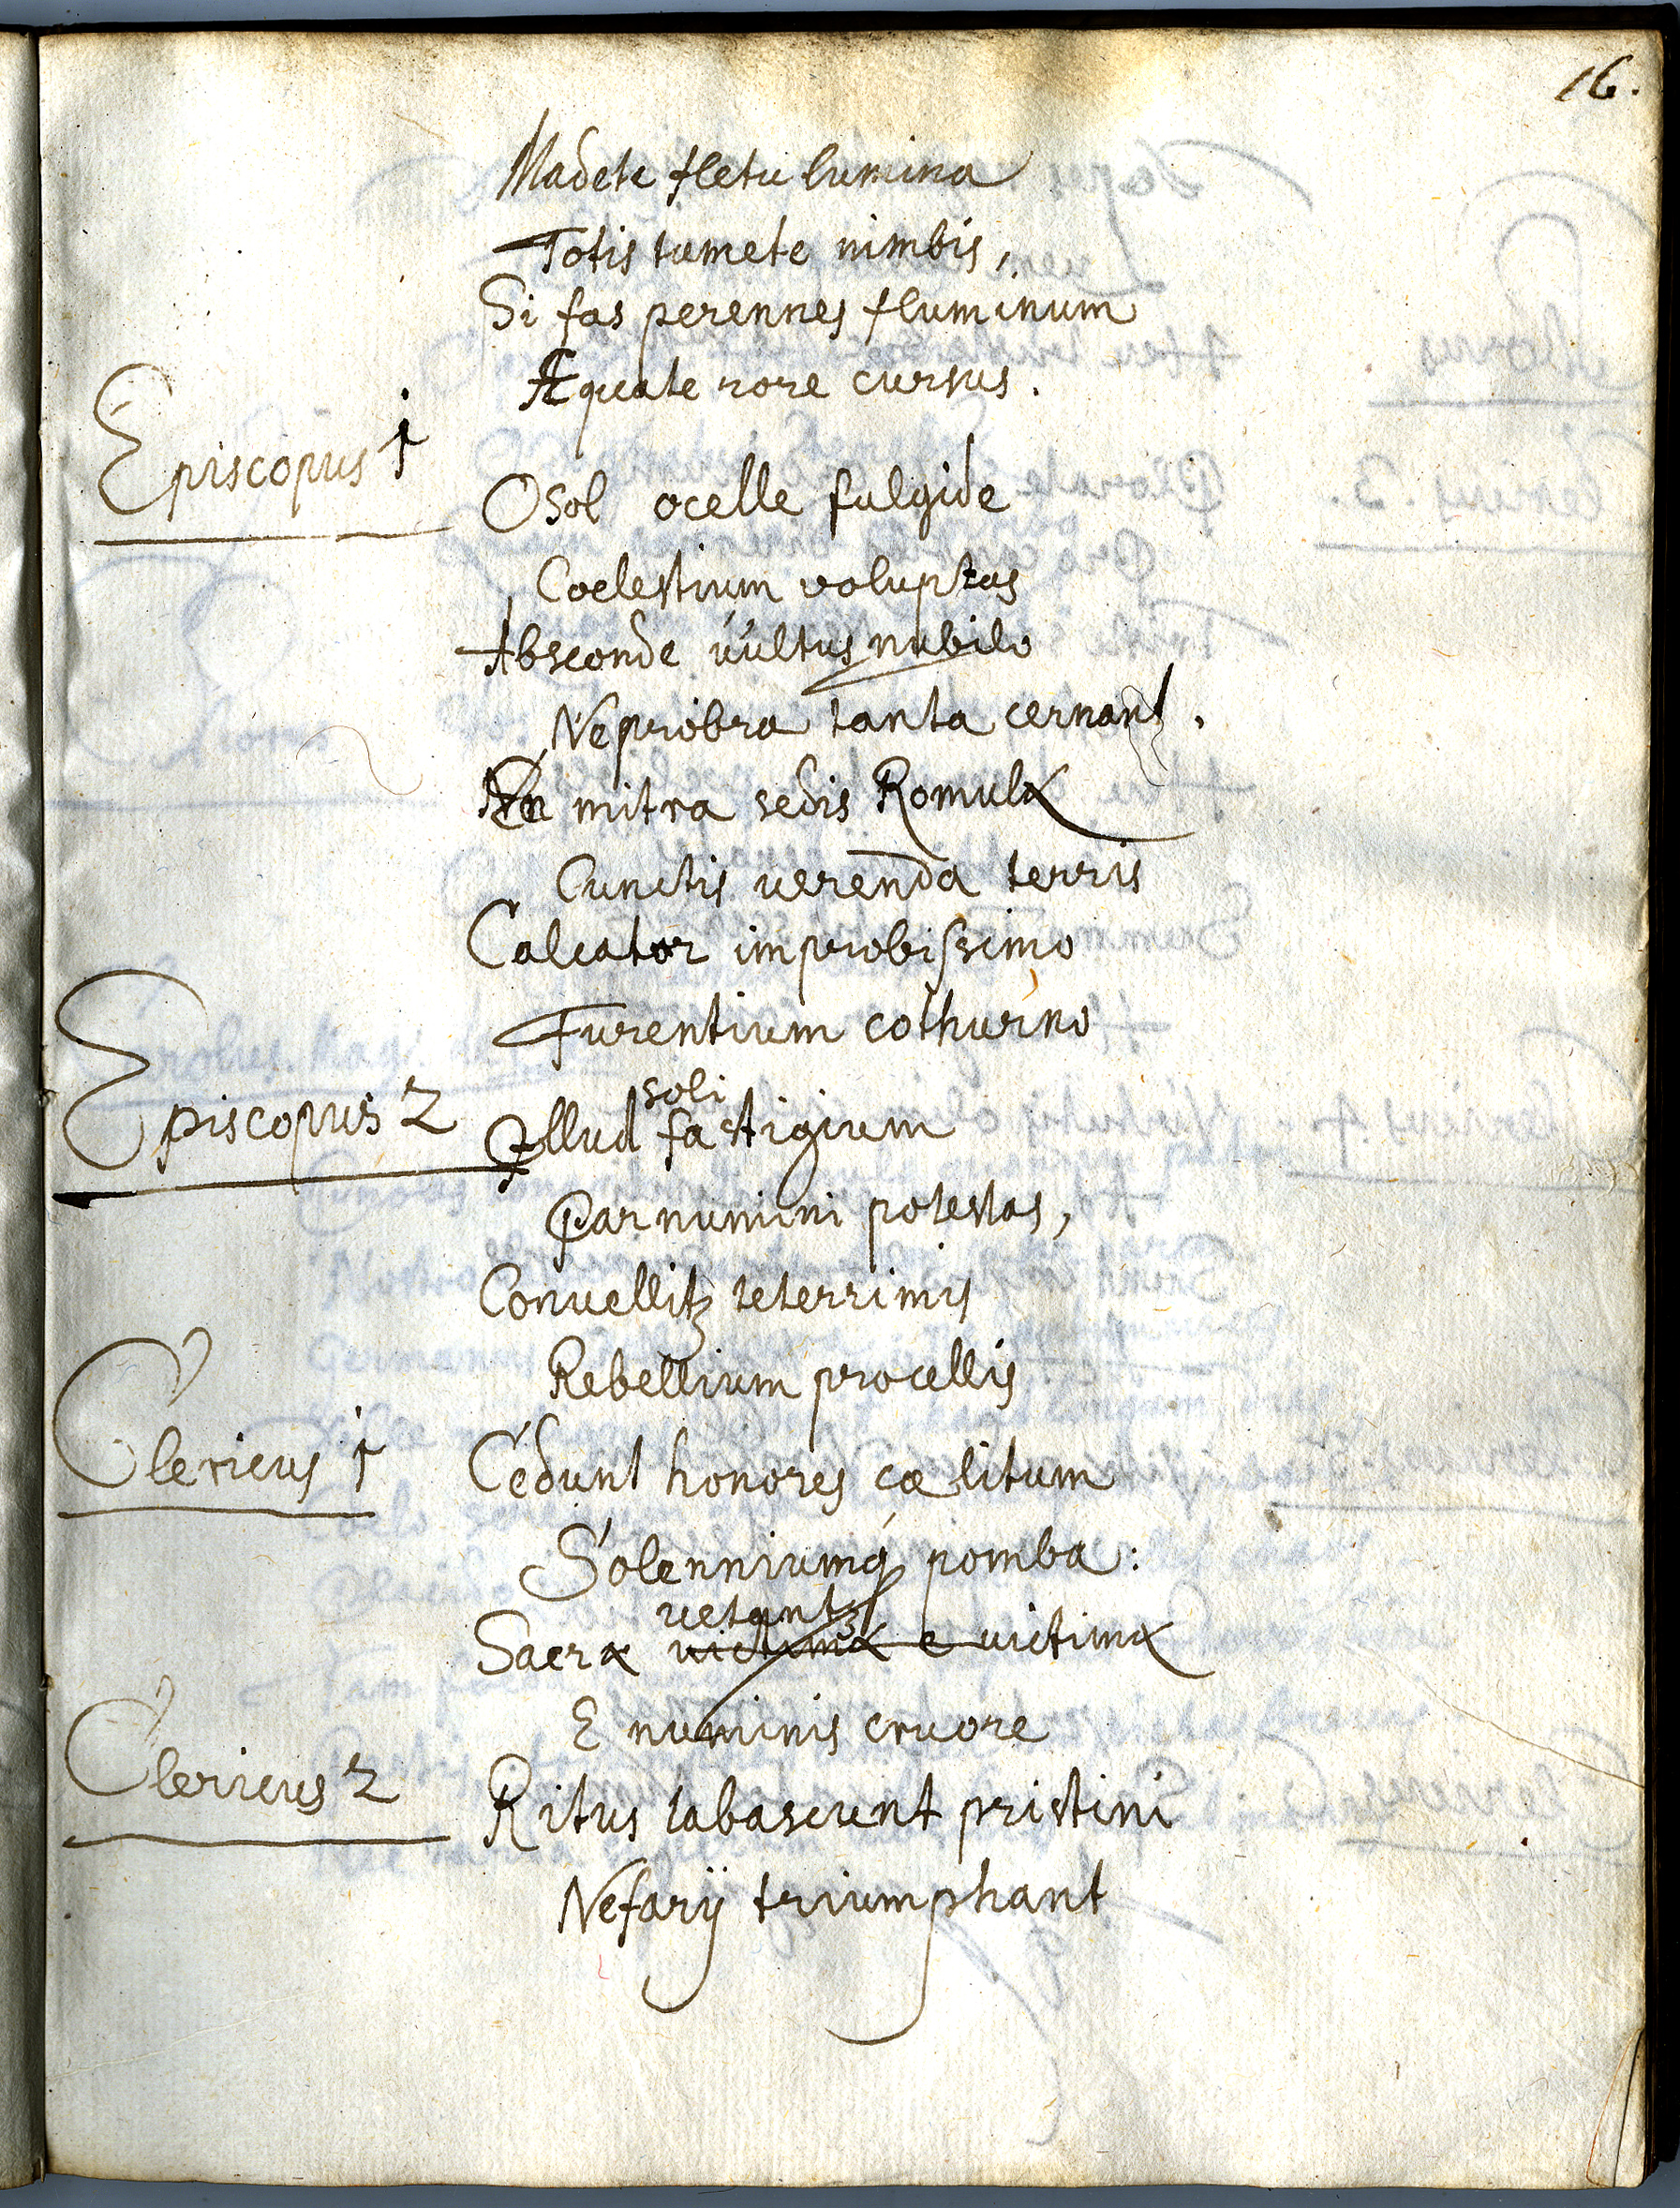 16.
Madete fletu lumina
Totis tumete nimbis,
Si fas perennes fluminum
Æquate rore cursus.
Episcopus 1
O sol ocelle fulgide
Coelestium voluptas
Absconde vultus nubilo
Ne probra tanta cernant.
En mitra sedis Romulæ
Cunctis verenda terris
Calcator improbissimo
Furentium cothurno
Episcopus 2
soli
Illud fastigium
Par numini potestas,
Convellitʒ teterrimis
Rebellium procellis
Clericus 1
Cedunt honores cælitum
Solenniumq pomba:
vetantʒ
Sacræ victimæ e victimæ
E numinis cruore
Clericus 2
Ritus labascunt pristini
Nefarij triumphant